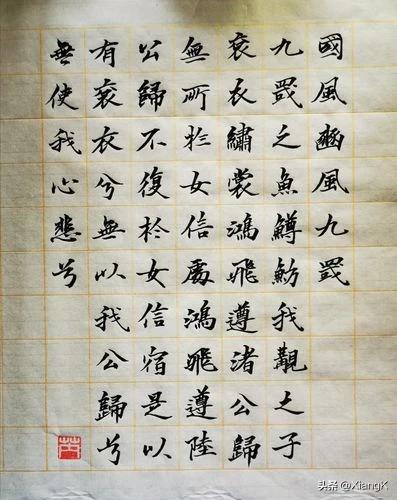 國風豳風九罭
九罭之魚鱒魴我覯之子
袞衣繡裳鴻飛遵渚公歸
無所於女信處鴻飛遵陸
公歸不復於女信宿是以
有袞衣兮無以我公歸兮
無使我心悲兮
头条 @XiangK